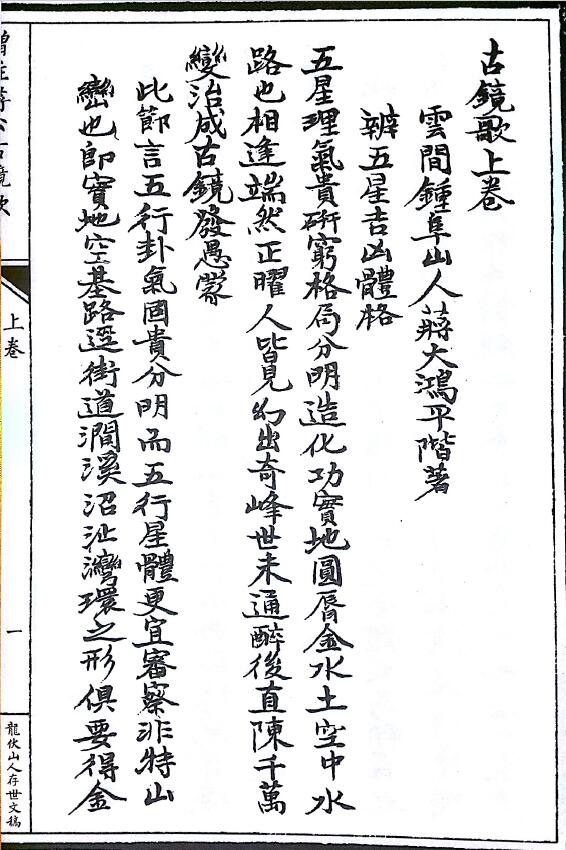 古鏡歌上卷
雲間鍾阜山人蔣大鴻平階著
辨五星吉凶體格
五星理氣貴硏窮格局分明造化功實地圓唇金水土空中水
路也相逢端然正曜人皆見幻出奇峰世未通醉後直陳千萬
變治成古鏡發愚蒙
此節言五行卦氣固貴分明而五行星體更宜審察非特山
巒也卽實地空基路逕街道澗溪沼沚灣環之形俱要得金
上卷
一
龍伏山人存世文稿